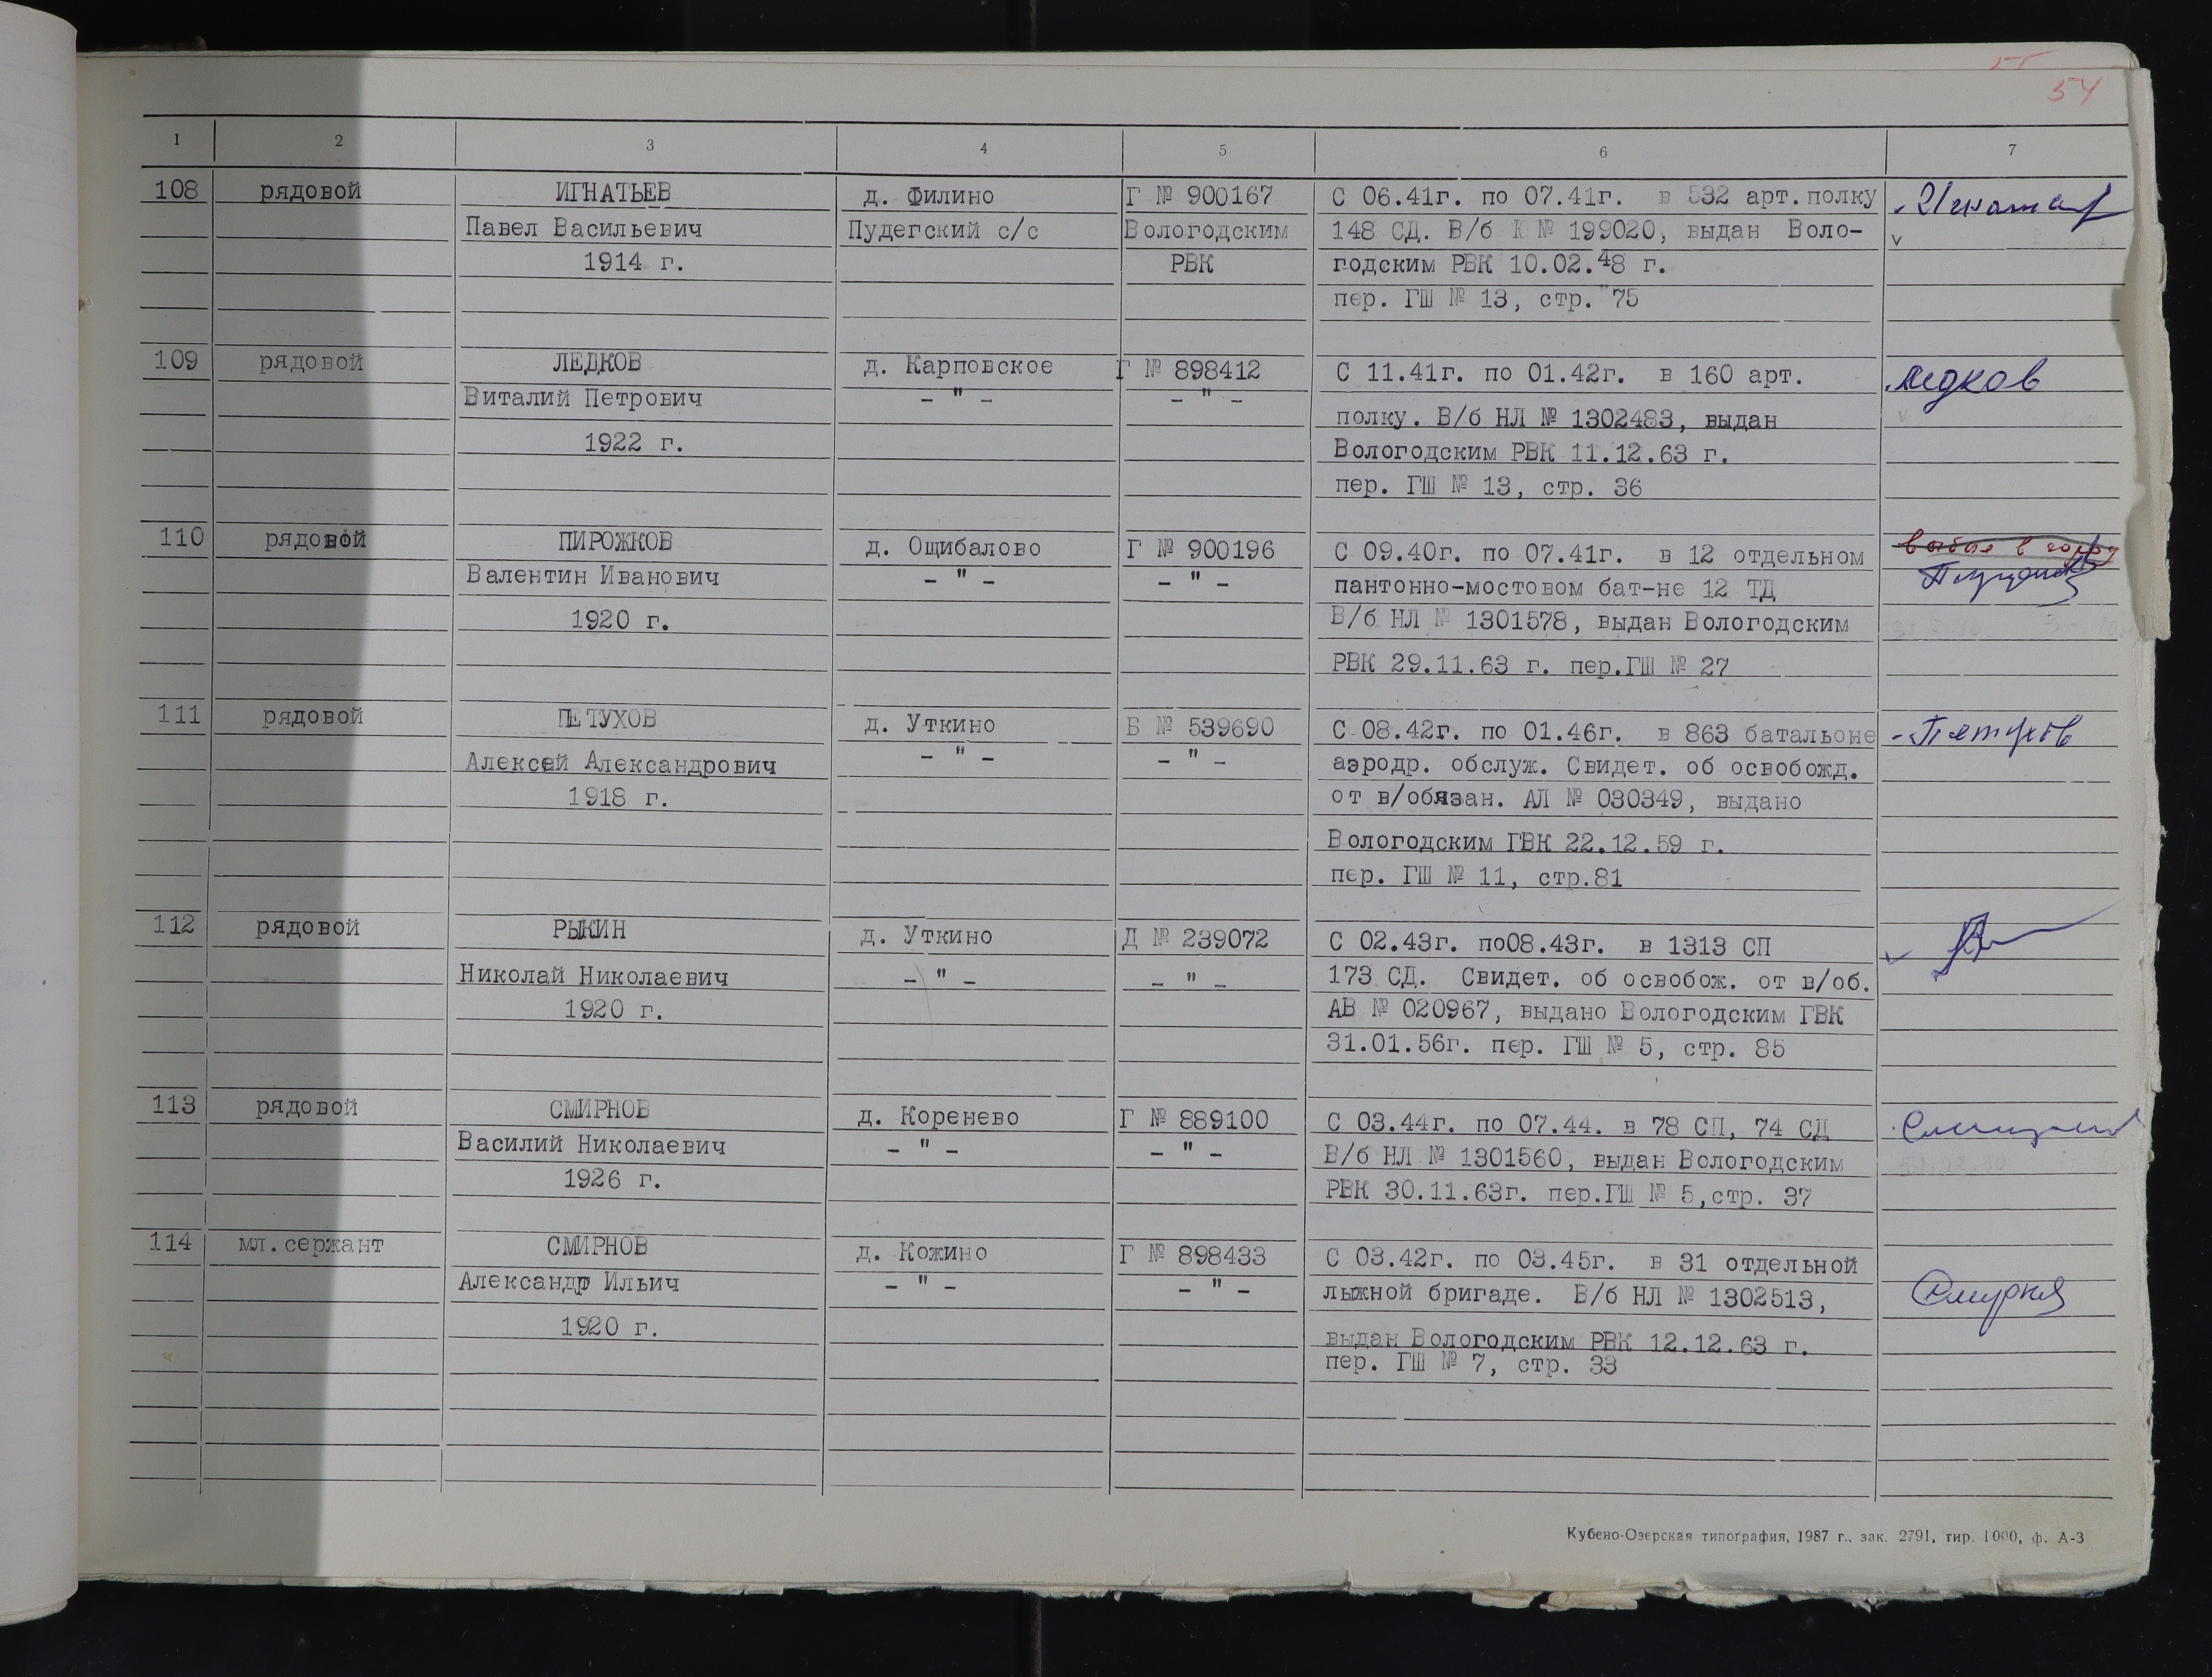 54
1 2 3 4 5 6 7
108 рядовой ИГНАТЬЕВ д. Филино Г № 900167 С 06.41г. по 07.41г. в 532 арт.полку
Павел Васильевич Пудегский с/с Вологодским 148 СД. В/б К № 199020, выдан Воло-
1914 г. РВК годским РВК 10.02.48 г.
пер. ГШ № 13, стр. 75
109 рядовой ЛЕДКОВ д. Карповское Г № 898412 С 11.41г. по 01.42г. в 160 арт. Ледков
Виталий Петрович - " - - " - полку. В/б НЛ № 1302483, выдан
1922 г. Вологодским РВК 11.12.63 г.
пер. ГШ № 13, стр. 36
110 рядовой ПИРОЖКОВ д. Ощибалово Г № 900196 С 09.40г. по 07.41г. в 12 отдельном выбыл в город
Валентин Иванович - " - - " - пантонно-мостовом бат-не 12 ТД
1920 г. В/б НЛ № 1301578, выдан Вологодским
РВК 29.11.63 г. пер.ГШ № 27
111 рядовой ПЕТУХОВ д. Уткино Б № 539690 С 08.42г. по 01.46г. в 863 батальоне Петухов
Алексей Александрович - " - - " - аэродр. обслуж. Свидет. об освобожд.
1918 г. от в/обязан. АЛ № 030349, выдано
Вологодским ГВК 22.12.59 г.
пер. ГШ № 11, стр.81
112 рядовой РЫКИН д. Уткино Д № 239072 С 02.43г. по08.43г. в 1313 СП
Николай Николаевич - " - - " - 173 СД. Свидет. об освобож. от в/об.
1920 г. АВ № 020967, выдано Вологодским ГВК
31.01.56г. пер. ГШ № 5, стр. 85
113 рядовой СМИРНОВ д. Коренево Г № 889100 С 03.44г. по 07.44. в 78 СП, 74 СД
Василий Николаевич - " - - " - В/б НЛ № 1301560, выдан Вологодским
1926 г. РВК 30.11.63г. пер.ГШ № 5,стр. 37
114 мл.сержант СМИРНОВ д. Кожино Г № 898433 С 03.42г. по 03.45г. в 31 отдельной
Александр Ильич - " - - " - лыжной бригаде. В/б НЛ № 1302513,
1920 г. выдан Вологодским РВК 12.12.63 г.
пер. ГШ № 7, стр. 33
Кубено-Озерская типография, 1987 г., зак. 2791, тир. 1000, ф. А-3